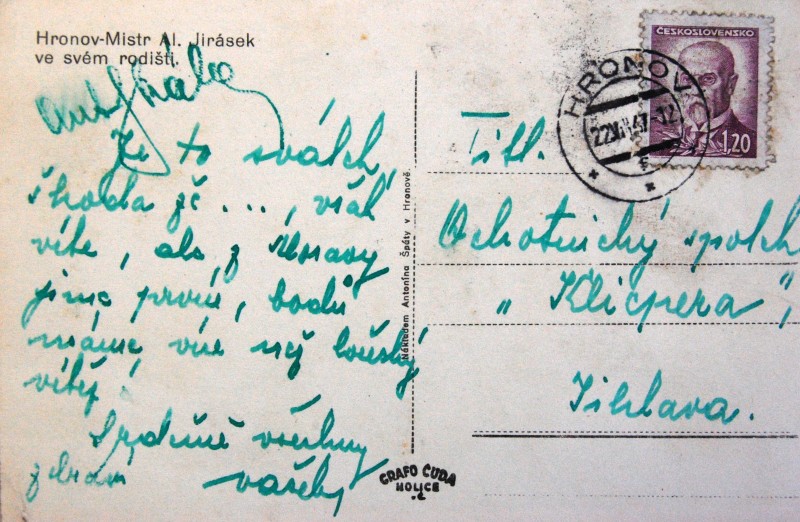 Hronov-Mistr Al. Jirásek
ve svém rodišti.
Je to svátek,
škoda že ..., však
víte, ale z Moravy
jsme první, bodů
máme více než loňský
vítěz!
Srdečně všechny
zdraví
vašeby
Nákladem Antonína Špáty v Hronově.
GRAFO ČUDA
HOLICE
ČESKOSLOVENSKO
1,20
HRONOV
Titl.
Ochotnický spolek
„Klicpera",
Jihlava.